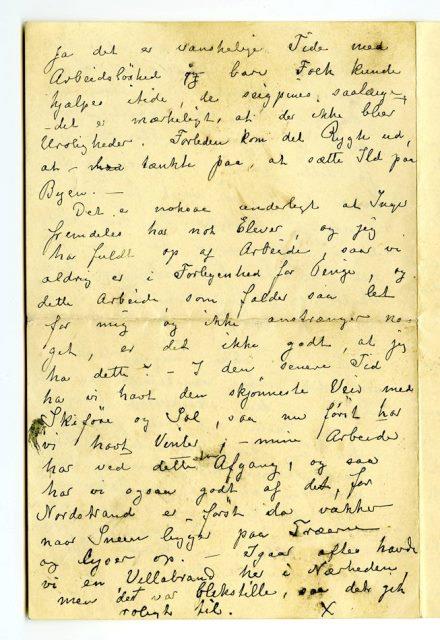 Ja det er vanskelige Tider med
Arbeidsløshed og bare Folk kunde
hjælpes itide, de saalænge,
– det er mærkeligt, at der ikke blev
Uroligheder. Forleden kom det Rygte ud,
at – tænkte paa, at sætte Ild paa
Byen. –
Det er noksaa underlegt at Inga
fremdeles har nok Elever, og jeg
har fuldt op af Arbeide, saa vi
aldrig er i Forlegenhed for Penge, og
dette Arbeide, som falder saa let
for mig og ikke anstrænger no-
get, er det ikke godt, at jeg
ha dette? – I den senere Tid
ha vi havt den skjønneste Veir med
Skiføre og Sol, saa nu först har
vi havt Vinter; – mine Arbeide
har ved dette Afgang, og saa
har vi ogsaa godt af det, for
Nordstrand er först da vakker
naar Sneen ligger paa Træerne
og lyser op. – Igaar aftes havde
vi en Villabrand her i Nærheden,
men det var blikstille, saa det gik
roligt til. X